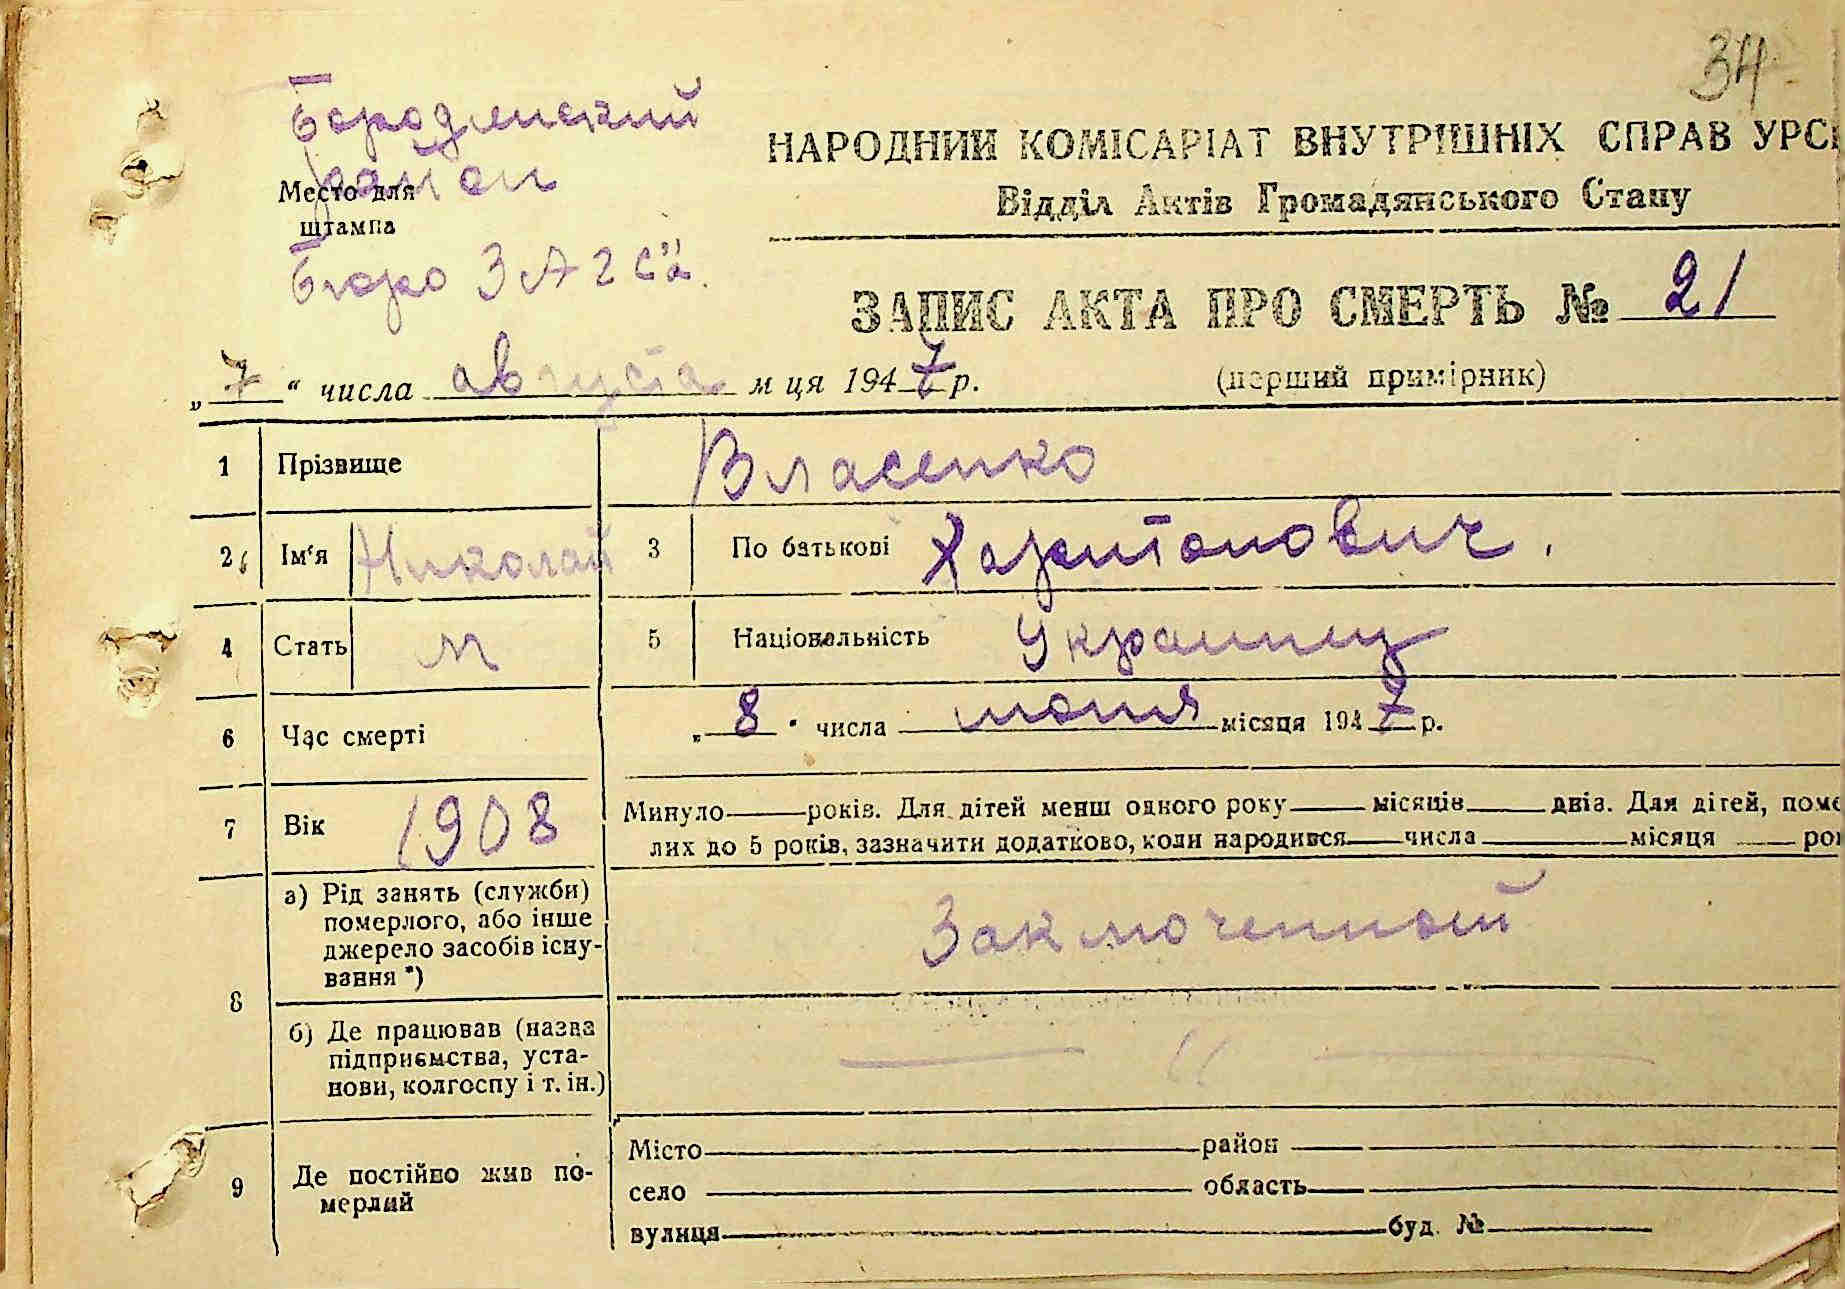 34
Бородянский
район
Место для
штампа
Бюро ЗАГС'а.
НАРОДНИИ КОМІСАРІАТ ВНУТРІШНІХ СПРАВ УРС
Відділ Актів Громадянського Стану
ЗАПИС АКТА ПРО СМЕРТЬ № 21
„ 7 “ числа августа м ця 1947 р. (перший примірник)
1 Прізвище Власенко
2 Ім'я Николай 3 По батькові Харитонович.
4 Стать м 5 Національність Украинец
6 Час смерті „ 8 " числа июня місяця 1947 р.
7 Вік 1908 Минуло — років. Для дітей менш одного року — місяців — днів. Для дітей, поме
лих до 5 років, зазначити додатково, коли народився — числа — місяця — ро
8 а) Рід занять (служби)
померлого, або інше
джерело засобів існу-
вання *) Заключенный
б) Де працював (назва
підприємства, уста-
нови, колгоспу і т. ін.) — " —
9 Де постійно жив по-
мерлий
Місто район
село область
вулиця буд. №